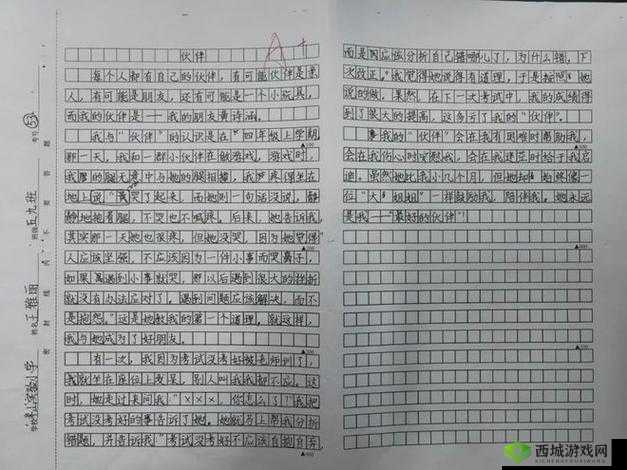 A+
伙伴
每个人都有自己的伙伴，有可能伙伴是家
人，有可能是朋友，还有可能是一个小玩具，
而我的伙伴是——我的朋友黄诗涵。
我与“伙伴”的认识是在“四年级上学期
那一天，我和一群小伙伴在做游戏，游戏时，
我的腿无意中与她的腿相撞，我疼得坐在
地上哭了起来，而她则一句话没说，静
静地抱着腿，不哭也不喊疼。后来，她告诉我，
其实那一天她也很疼，但她没哭，因为她觉得
人应该坚强，不应该因为一件小事而哭鼻子，
如果遇到小事就哭，那以后遇到很大的挫折
就没有办法应对了。遇到问题应该解决，而不
是抱怨。”这是她教我的第一个道理。就这样，
我与她成为了好朋友。
有一次，我因为考试没考好被老师训了，
我就坐在座位上发呆，别人叫我我都不应。这
时，她走过来问我“×××，你怎么了？”我把
考试没考好的事告诉了她。她就马上帮我分析
错题，并告诉我“考试没考好不应该自抱自弃，
而是因应该分析自己错哪儿了，为什么错，下
次改正。”我觉得她说得有道理，于是按照她
说的做，果然，在下一次考试中，我的成绩得
到了很大的提高，这多亏了我的“伙伴”。
我的“伙伴”会在我有困难时帮助我，
会在我伤心时安慰我，会在我迷茫时给予我启
迪。虽然她比我小几个月，但她却始终像一
位“大姐姐”一样鼓励我，陪伴我。她永远
是我——“最好的伙伴”！
学校 实验小学 姓名 王雅丽 班级 五九班 考号 53
密 封 线 内 不 要 答 题
西城游戏网